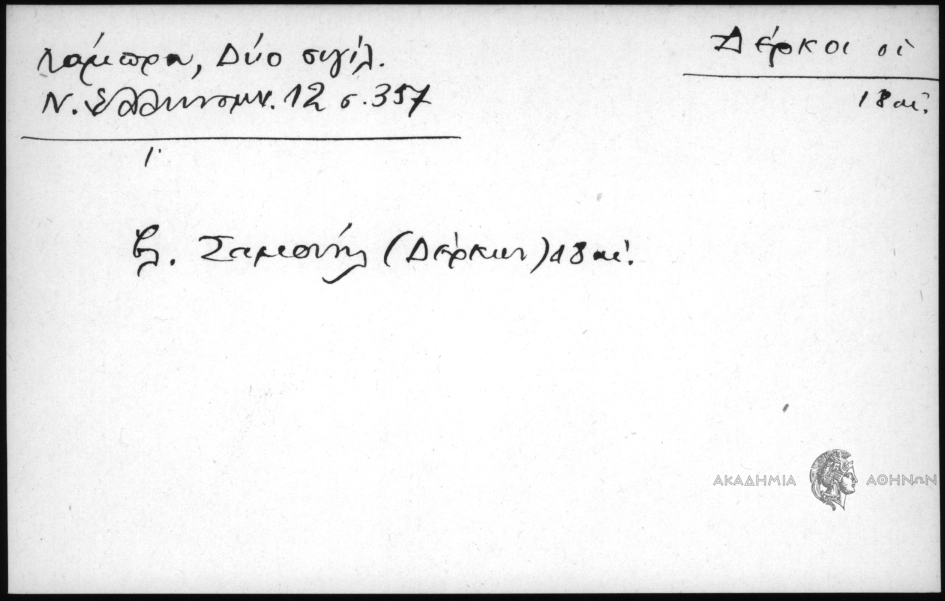 Λάμπρου, Δύο σιγίλ.
Ν. Ἑλληνομν. 12 σ. 357
Δέρκοι οἱ
18 αἰ.
βλ. Σαμουήλ (Δέρκων) 18 αἰ.
ΑΚΑΔΗΜΙΑ ΑΘΗΝΩΝ